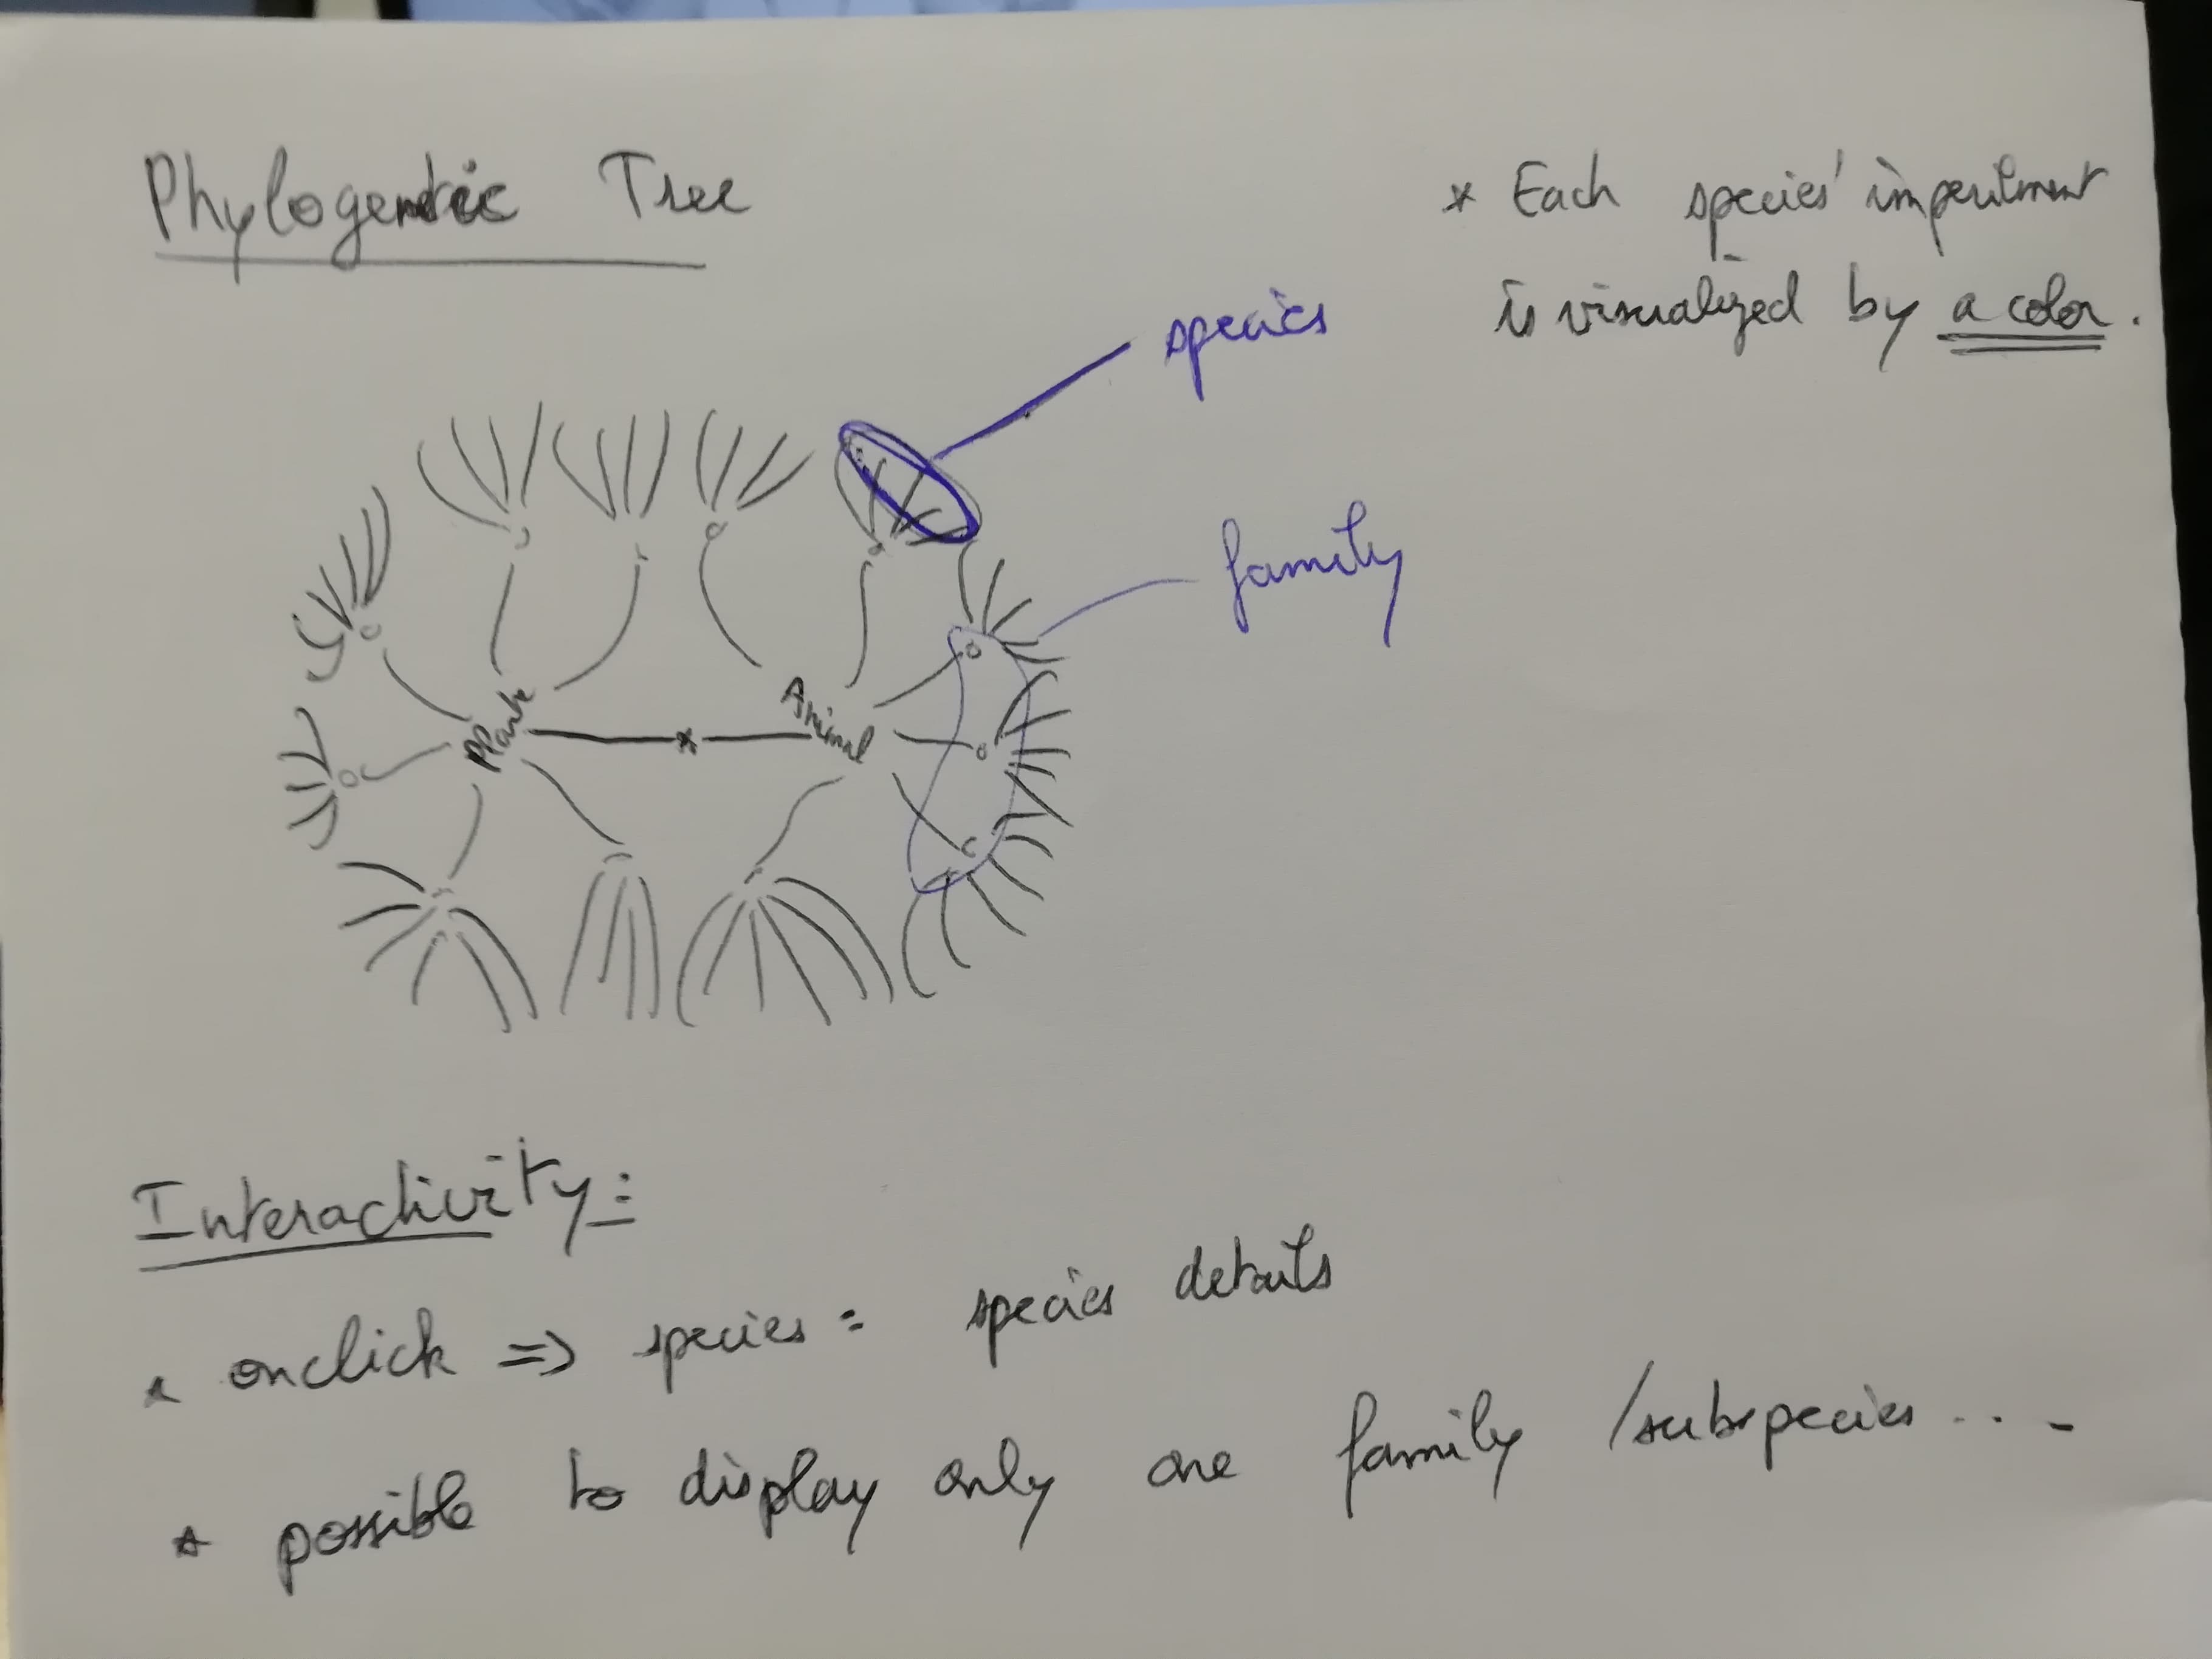 Phylogenetic Tree
* Each species' imperilment
is visualized by a color.
species
family
Plant
Animal
Interactivity:
* onclick => species: species details
* possible to display only one family /subspecies ....